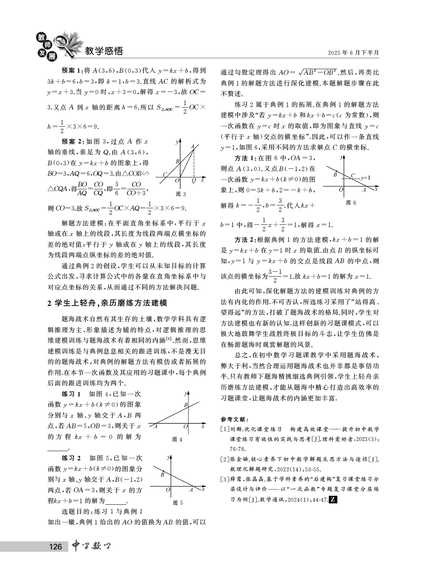 教育发展
教学感悟
2025 年 6 月下半月
预案 1:将 A(3,6),B(0,3)代入 y=kx+b,得到
3k+b=6,b=3,即 k=1,b=3.直线 AC 的解析式为
y=x+3.当 y=0 时,x+3=0,解得 x=−3,故 OC=
3.又点 A 到 x 轴的距离 h=6,所以 S△AOC=1/2 OC×
h=1/2×3×6=9.
预案 2:如图 3,过点 A 作 x
轴的垂线,垂足为 Q,由 A(3,6),
B(0,3)在 y=kx+b 的图象上,得
BO=3,AQ=6,OQ=3.由△COB∽
△CQA,得BO/AQ=CO/CQ,即3/6=CO/(CO+3),
图 3
则 CO=3.故 S△AOC=1/2 OC×AQ=1/2×3×6=9.
解题方法建模:在平面直角坐标系中,平行于 x
轴或在 x 轴上的线段,其长度为线段两端点横坐标的
差的绝对值;平行于 y 轴或在 y 轴上的线段,其长度
为线段两端点纵坐标的差的绝对值.
通过典例 2 的创设,学生可以从未知目标的计算
公式出发,寻求计算公式中的各量在直角坐标系中与
对应点坐标的关系,从而通过不同的方法解决问题.
2 学生上轻舟,亲历磨练方法建模
题海战术自然有其生存的土壤,数学学科具有逻
辑推理为主、形象描述为辅的特点,对逻辑推理的思
维建模训练与题海战术有着相同的内涵[3].然而,思维
建模训练是与典例息息相关的跟进训练,不是漫无目
的的题海战术,对典例的解题方法有模仿或者拓展的
作用.在本节一次函数及其应用的习题课中,每个典例
后面的跟进训练均为两个.
练习 1 如图 4,已知一次
函数 y=kx+b(k≠0)的图象
分别与 x 轴、y 轴交于 A,B 两
点,若 AB=5,OB=3,则关于 x
的方程 kx+b=0 的解为
______.
图 4
练习 2 如图 5,已知一次
函数 y=kx+b(k≠0)的图象分
别与 x 轴、y 轴交于 A,B(−1,2)
两点,若 OA=3,则关于 x 的方
程kx+b=1 的解为______.
图 5
选题目的:练习 1 与典例 1
如出一辙,典例 1 给出的 AO 的值换为 AB 的值,可以
通过勾股定理得出 AO=√(AB²−OB²).然后,再类比
典例 1 的解题方法进行深化建模.本题解题步骤在此
不赘述.
练习 2 属于典例 1 的拓展.在典例 1 的解题方法
建模中涉及“若 y=kx+b 和 kx+b=c(c 为常数),则
一次函数在 y=c 时 x 的取值,即为图象与直线 y=c
(平行于 x 轴)交点的横坐标”.因此,可以作一条直线
y=1,如图 6,采用不同的方法求解点 C 的横坐标.
方法 1:在图 6 中,OA=3,
则点 A(3,0).又点B(−1,2)在
一次函数 y=kx+b(k≠0)的图
象上,则 0=3k+b,2=−k+b,
解得 k=−1/2,b=3/2.代入kx+
图 6
b=1 中,得−1/2x+3/2=1,解得 x=1.
方法 2:根据典例 1 的方法建模,kx+b=1 的解
是 y=kx+b 在 y=1 时 x 的取值.由点 B 的纵坐标可
知,y=1 与 y=kx+b 的交点是线段 AB 的中点,则
该点的横坐标为(3−1)/2=1.故 kx+b=1 的解为 x=1.
由此可知,深化解题方法的建模训练对典例的方
法有内化的作用.不可否认,所选练习采用了“站得高、
望得远”的方法,打破了题海战术的格局.同时,学生对
方法建模也有新的认知.这样创新的习题课模式,可以
极大地鼓舞学生战胜终极目标的斗志,让学生仿佛是
在畅游题海时观赏解题的风景.
总之,在初中数学习题课教学中采用题海战术,
弊大于利,当然合理运用题海战术也并非都是事倍功
半.只有教师下题海精挑细选典例引领,学生上轻舟亲
历磨练方法建模,才能从题海中精心打造出高效率的
习题课堂,让题海战术的内涵更加丰富.
参考文献:
[1]刘娜.优化课堂练习 构建高效课堂——提升初中数学
课堂练习有效性的实践与思考[J].理科爱好者,2022(3):
76-78.
[2]张金婚.核心素养下初中数学解题反思方法与途径[J].
数理化解题研究,2022(14):53-55.
[3]薛莺,张晶晶.基于学科素养的“后建构”复习课堂练习分
层设计与评价——以“一次函数”专题复习课堂分层练
习为例[J].数学通讯,2024(1):44-47. Z
126 中学数学